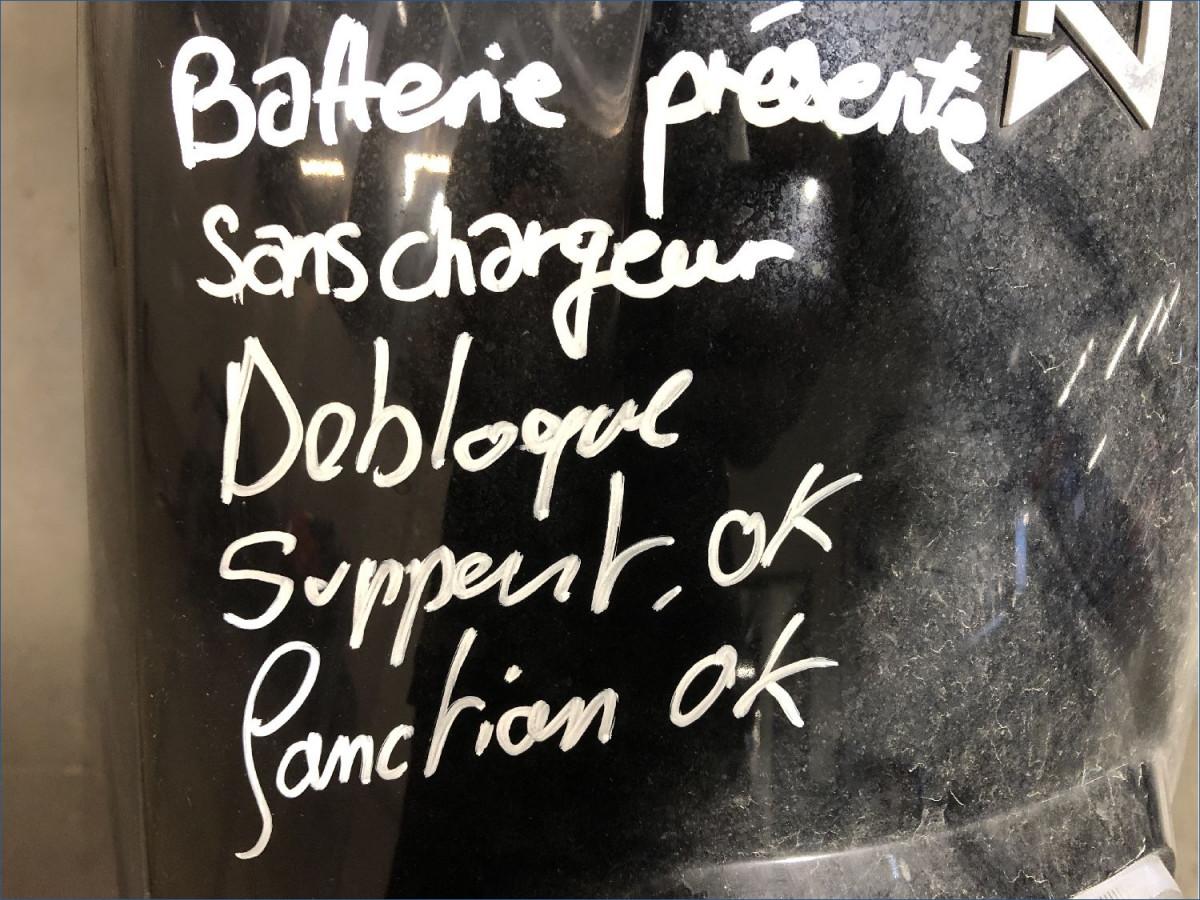 Batterie présente
Sans chargeur
Debloque
Suppeut, OK
fonction OK